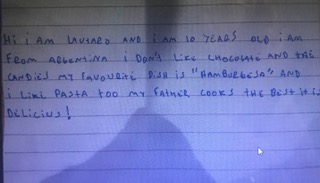 Hi i AM LAUTARO AND i AM 10 YEARS OLD i AM
FROM ARGENTINA i DON'T LIKE CHOCOLATE AND THE
CANDIES MY FAVOURITE DISH IS "HAMBURGESA" AND
i LIKE PASTA TOO MY FATHER COOKS THE BEST IT IS
DELICIUS!